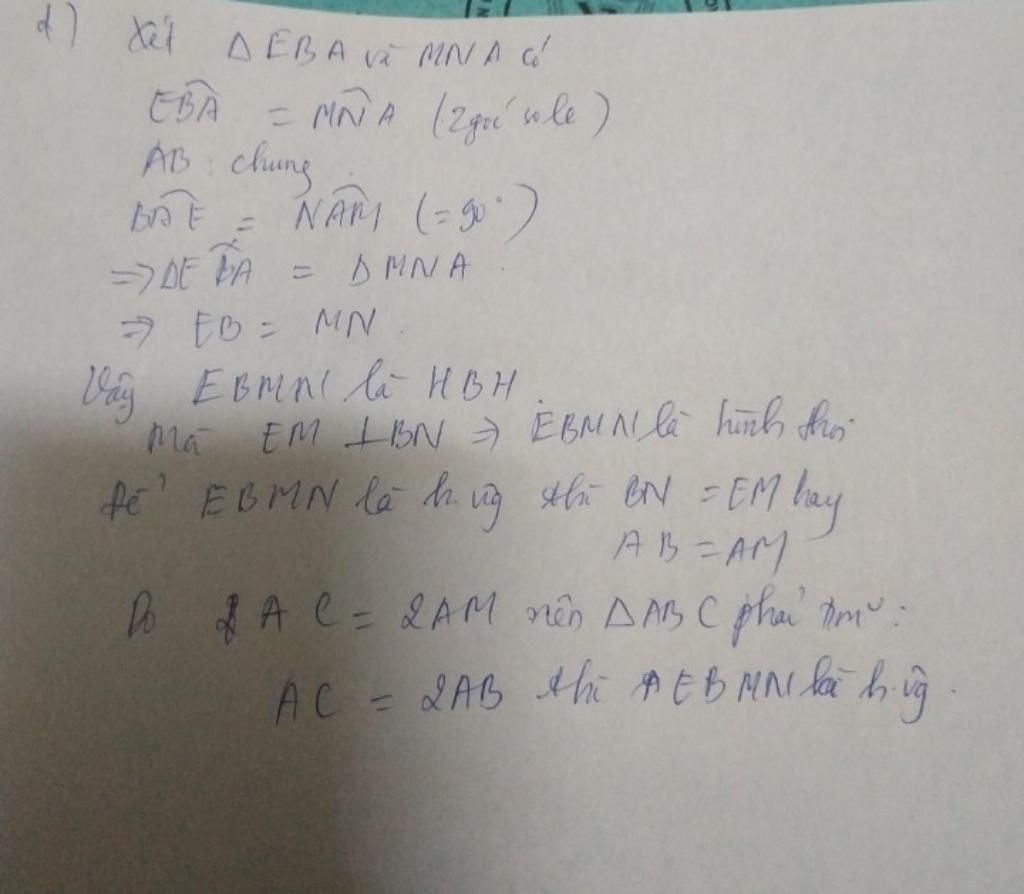 d) Xét ΔEBA và MNA có
EBA = MNA (2 góc so le)
AB : chung
BAE = NAM (= 90°)
=> ΔEBA = ΔMNA
=> EB = MN.
Vậy EBMN là HBH.
Mà EM ⊥ BN => EBMN là hình thoi
Để EBMN là h.vg thì BN = EM hay
AB = AM
Do AC = 2AM nên ΔABC phải t/m :
AC = 2AB thì EBMN là h.vg.